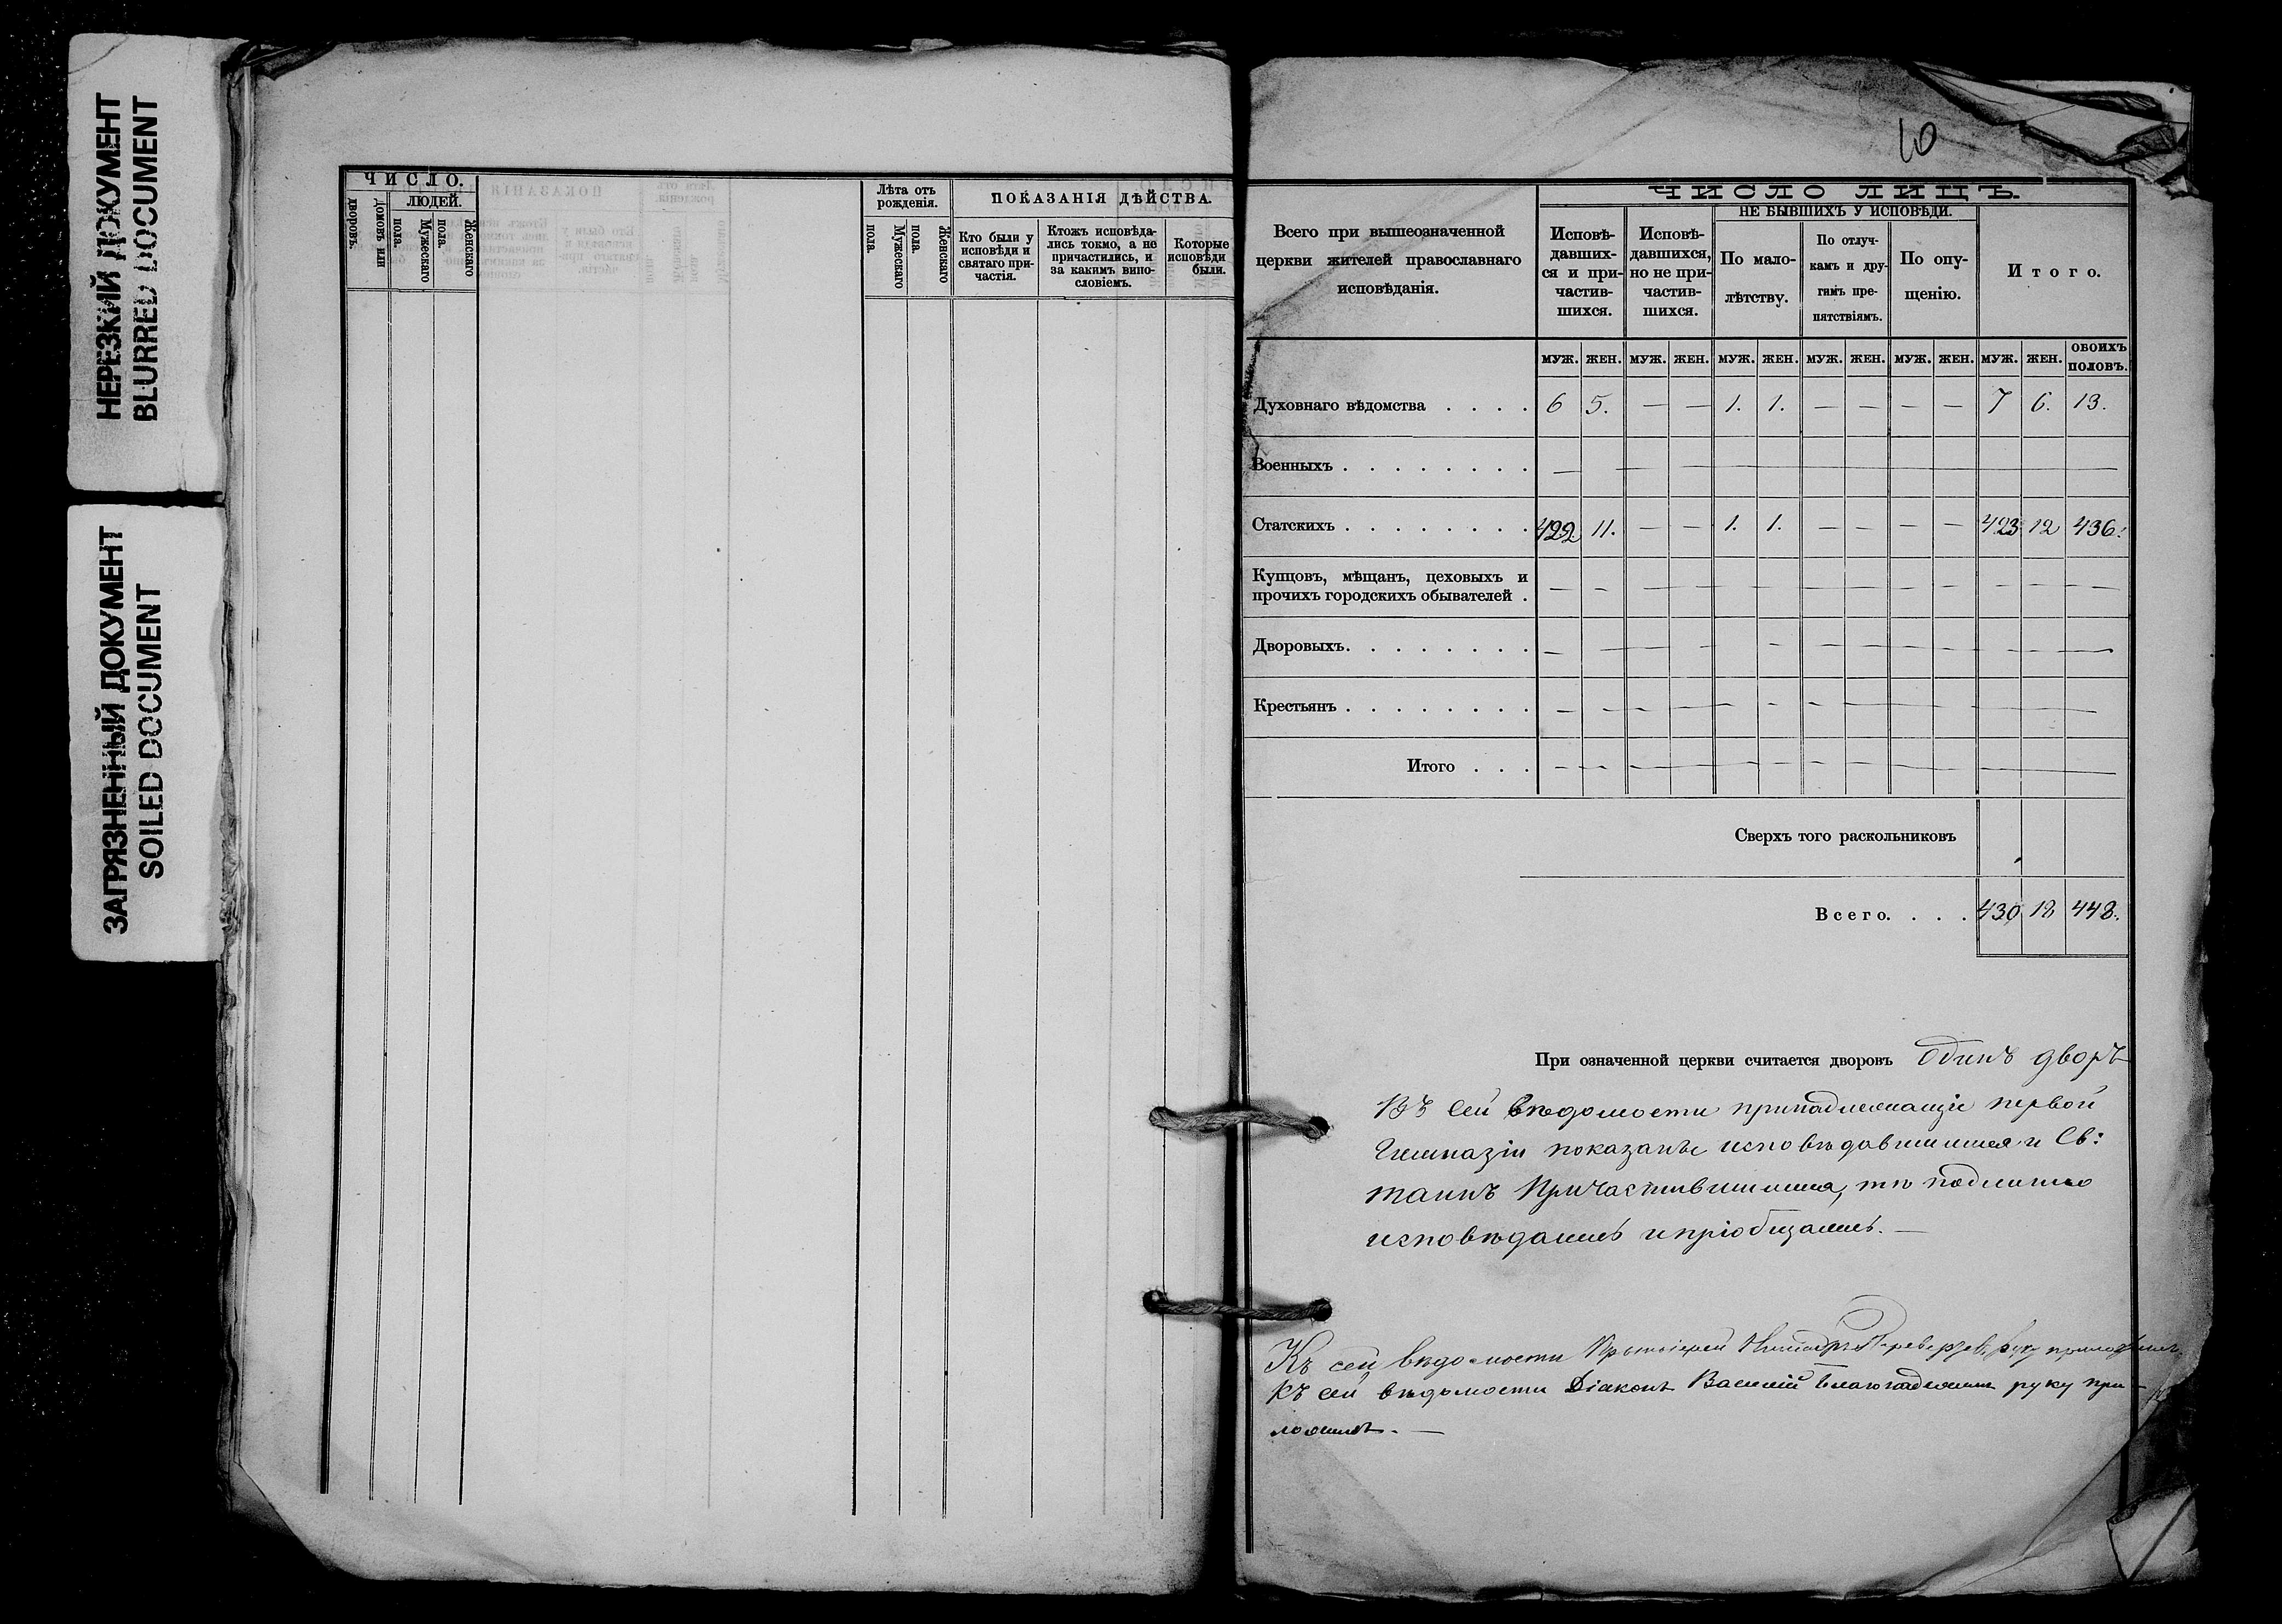 НЕРЕЗКИЙ ДОКУМЕНТ
BLURRED DOCUMENT
ЗАГРЯЗНЕННЫЙ ДОКУМЕНТ
SOILED DOCUMENT
ЧИСЛО.
дворовъ.
домовъ или
ЛЮДЕЙ.
Мужескаго пола.
Женскаго пола.
Лѣта отъ рожденія.
Мужескаго пола.
Женскаго пола.
ПОКАЗАНІЯ ДѢЙСТВА.
Кто были у
исповѣди и
святаго при-
частія.
Ктожъ исповѣда-
лись токмо, а не
причастились, и
за какимъ вино-
словіемъ.
Которые
исповѣди
были.
10
Всего при вышеозначенной
церкви жителей православнаго
исповѣданія.
ЧИСЛО ЛИЦЪ.
Исповѣ-
давших-
ся и при-
частив-
шихся.
Исповѣ-
давшихся,
но не при-
частив-
шихся.
НЕ БЫВШИХЪ У ИСПОВѢДИ.
По мало-
лѣтству.
По отлуч-
камъ и дру-
гимъ пре-
пятствіямъ.
По опу-
щенію.
Итого.
МУЖ. ЖЕН. МУЖ. ЖЕН. МУЖ. ЖЕН. МУЖ. ЖЕН. МУЖ. ЖЕН. МУЖ. ЖЕН. ОБОИХЪ ПОЛОВЪ.
Духовнаго вѣдомства . . . . 6 5. — — 1. 1. — — — — 7 6. 13.
Военныхъ . . . . . . . . — — — — — — — — — — — — —
Статскихъ . . . . . . . . 422 11. — — 1. 1. — — — — 423 12 436.
Купцовъ, мѣщанъ, цеховыхъ и
прочихъ городскихъ обывателей . — — — — — — — — — — — — —
Дворовыхъ. . . . . . . . — — — — — — — — — — — —
Крестьянъ . . . . . . . . — — — — — — — — — — — —
Итого . . . — — — — — — — — — — — — —
Сверхъ того раскольниковъ
Всего. . . . 430 18 448.
При означенной церкви считается дворовъ Одинъ дворъ
Въ сей вѣдомости принадлежащіе первой
Гимназіи показаны исповѣдавшимися и Св:
таинъ Причастившимися, тѣ подлинно
исповѣдались и пріобщались. —
Къ сей вѣдомости Протоіерей руку приложилъ.
Къ сей вѣдомости Діаконъ Василій руку при-
ложилъ. —